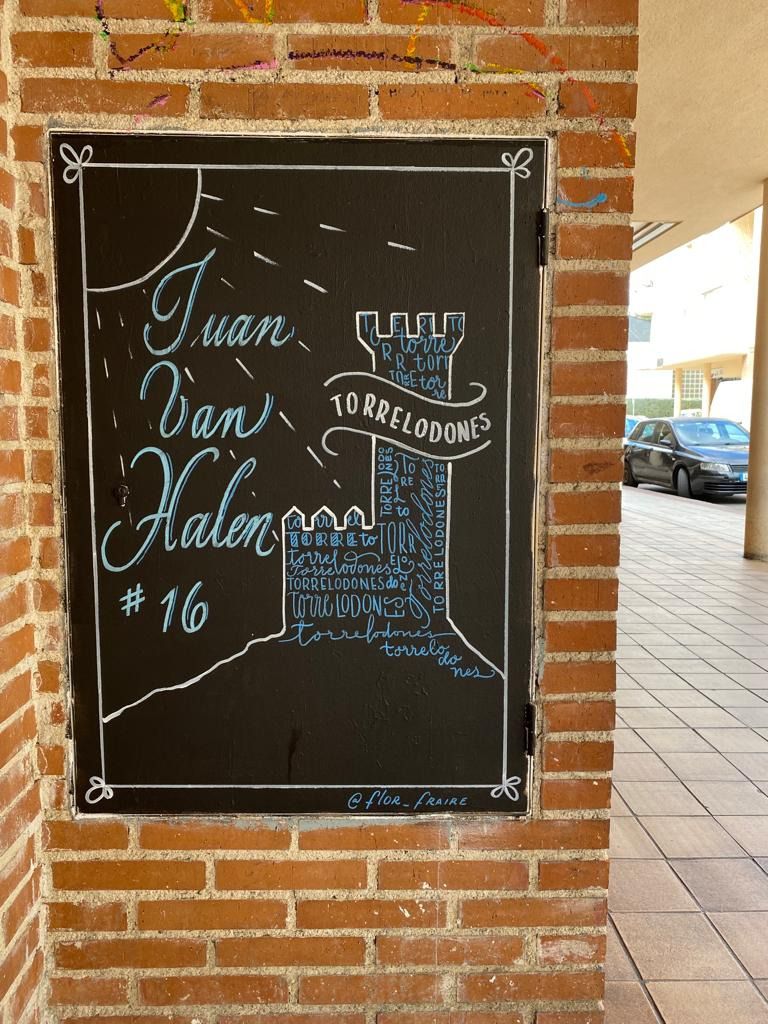 Juan
Van
Halen
# 16
TORRELODONES
torre
TORRE to
torrel
Torrelodones
TORRELODONES do
torre LODON
torrelodones
torrelo
do
nes
TORRELODONES
Torrelodones
TORRELODONES
@flor_fraire